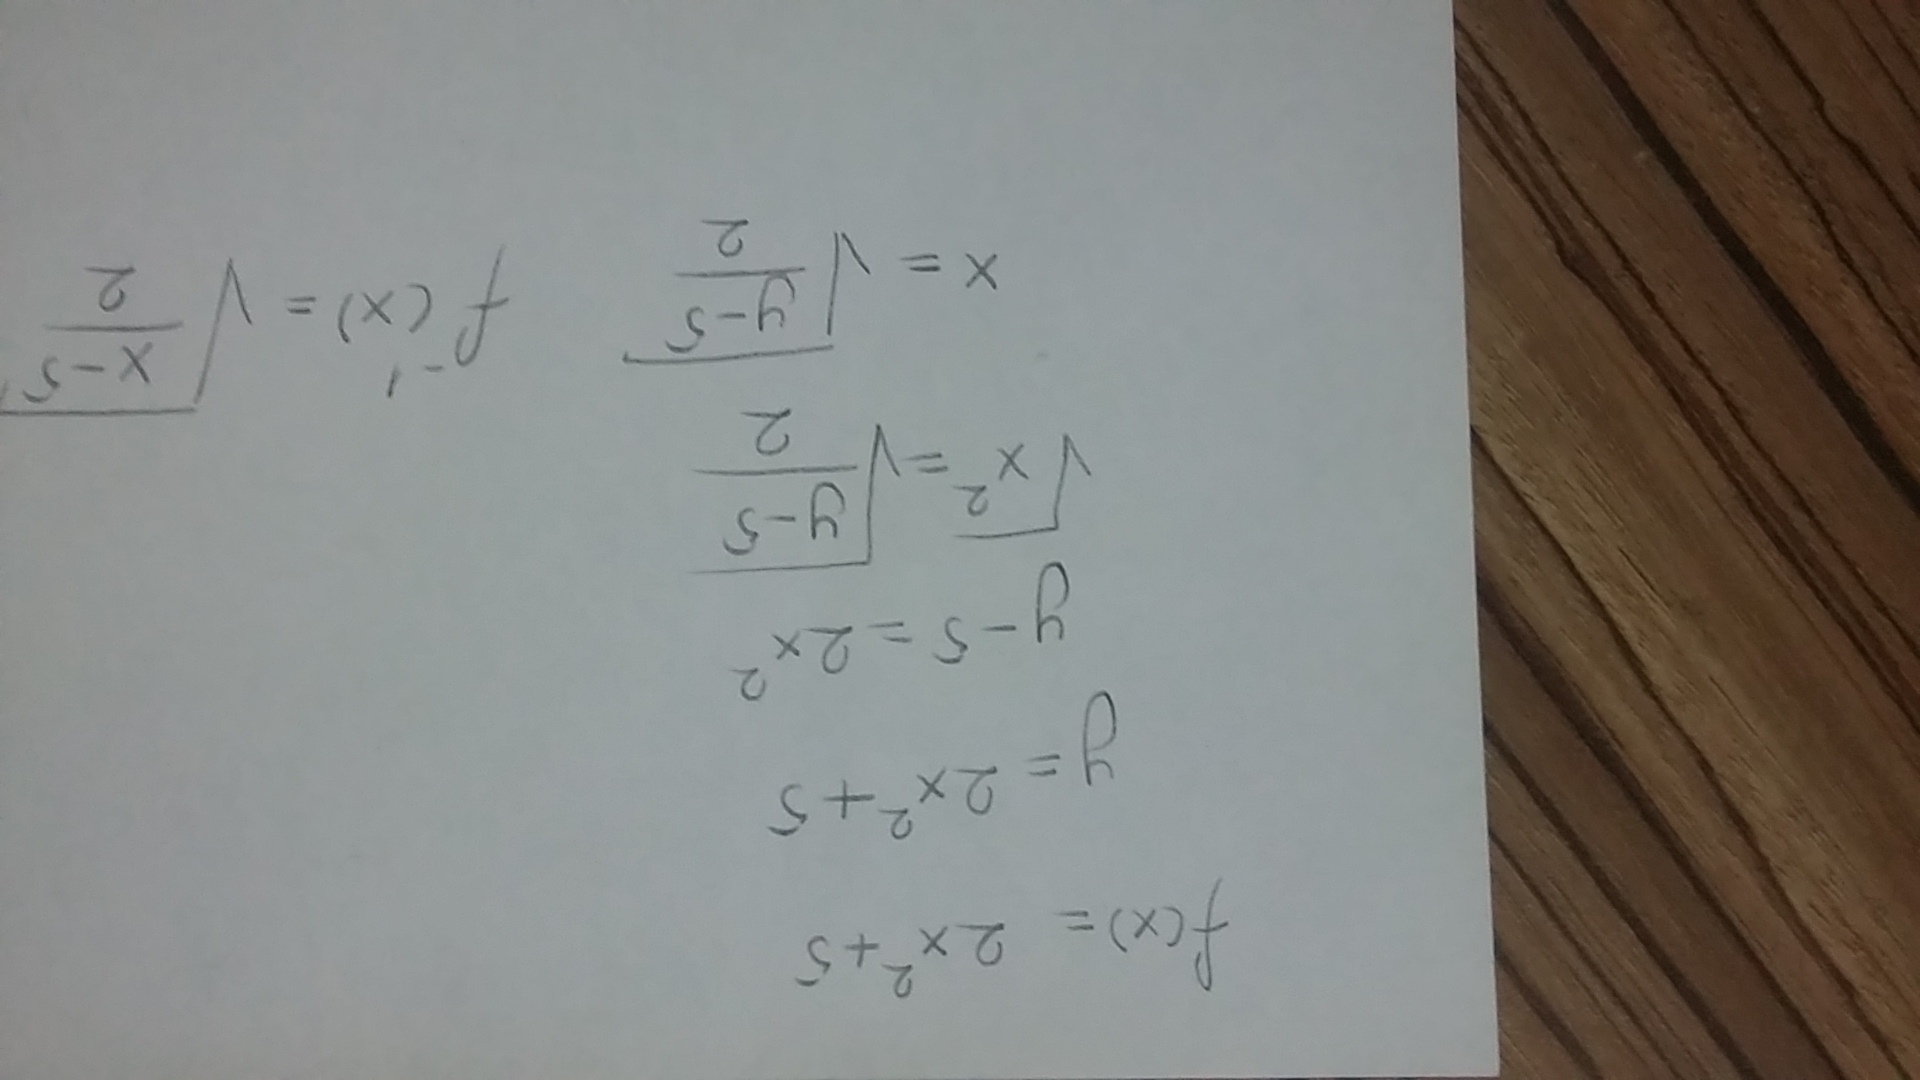 f(x) = 2x²+5
y = 2x²+5
y-5 = 2x²
√x² = √(y-5)/2
x = √(y-5)/2
f⁻¹(x) = √(x-5)/2